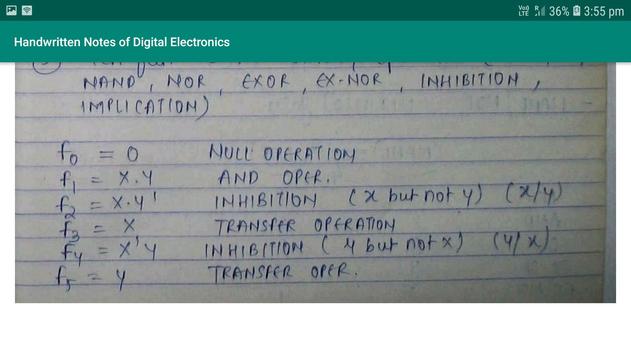 VoD LTE R 36% 3:55 pm
Handwritten Notes of Digital Electronics
NAND, NOR, EXOR, EX-NOR, INHIBITION,
IMPLICATION)
f0 = 0 NULL OPERATION
f1 = X.Y AND OPER.
f2 = X.Y' INHIBITION (x but not y) (x/y)
f3 = X TRANSFER OPERATION
f4 = X'Y INHIBITION (y but not x) (y/x)
f5 = y TRANSFER OPER.